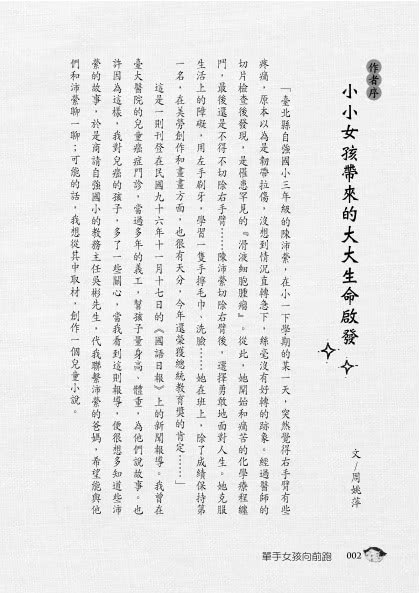 作者序
小小女孩帶來的大大生命啟發
文/周姚萍
「臺北縣自強國小三年級的陳沛縈，在小一下學期的某一天，突然覺得右手臂有些
疼痛，原本以為是韌帶拉傷，沒想到情況直轉急下，絲毫沒有好轉的跡象。經過醫師的
切片檢查後發現，是罹患罕見的『滑液細胞腫瘤』。從此，她開始和痛苦的化學療程纏
鬥，最後還是不得不切除右手臂……陳沛縈切除右臂後，選擇勇敢地面對人生。她克服
生活上的障礙，用左手刷牙，學習一隻手擰毛巾、洗臉……她在班上，除了成績保持第
一名，在美勞創作和畫畫方面，也很有天分，今年還榮獲總統教育獎的肯定……」
這是一則刊登在民國九十六年十一月十七日的《國語日報》上的新聞報導。我曾在
臺大醫院的兒童癌症門診，當過多年的義工，幫孩子量身高、體重，為他們說故事。也
許因為這樣，我對兒癌的孩子，多了一些關心，當我看到這則報導，便很想多知道些沛
縈的故事，於是商請自強國小的教務主任吳彬先生，代我聯繫沛縈的爸媽，希望能與他
們和沛縈聊一聊；可能的話，我想從其中取材，創作一個兒童小說。
單手女孩向前跑 002